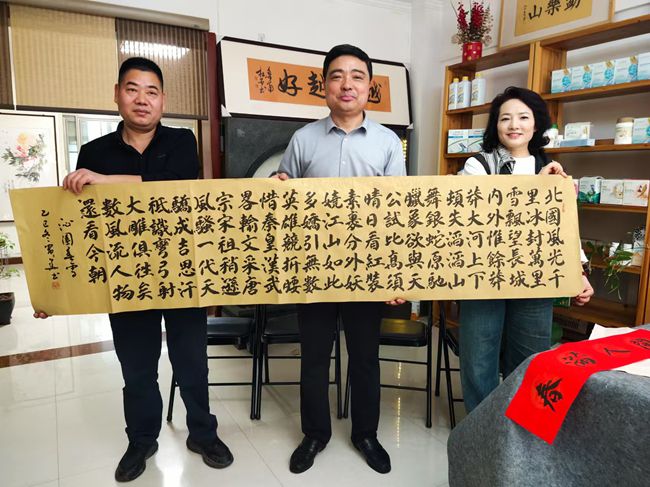 越 越好
北國風光千
里冰封萬里
雪飄望長城
内外惟餘莽
莽大河上下
頓失滔滔山
舞銀蛇原馳
蠟象欲與天
公試比高須
晴日看紅裝
素裹分外妖
嬈江山如此
多嬌引無數
英雄競折腰
惜秦皇漢武
畧輸文采唐
宗宋祖稍遜
風騷一代天
驕成吉思汗
祇識彎弓射
大雕俱往矣
數風流人物
還看今朝
沁園春雪
乙巳年
春滿人